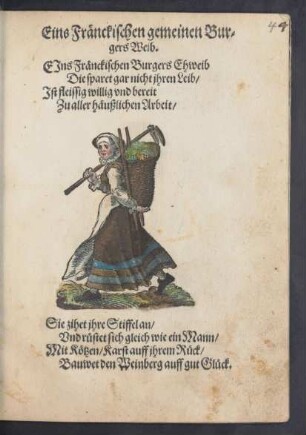 49
Eins Fränckischen gemeinen Bur-
gers Weib.
EIns Fränckischen Burgers Ehweib
Die sparet gar nicht jhren Leib/
Ist fleissig willig vnd bereit
Zu aller häußlichen Arbeit/
Sie zihet jhre Stiffel an/
Vnd rüstet sich gleich wie ein Mann/
Mit Kötzen/Karst auff jhrem Rück/
Bauwet den Weinberg auff gut Glück.